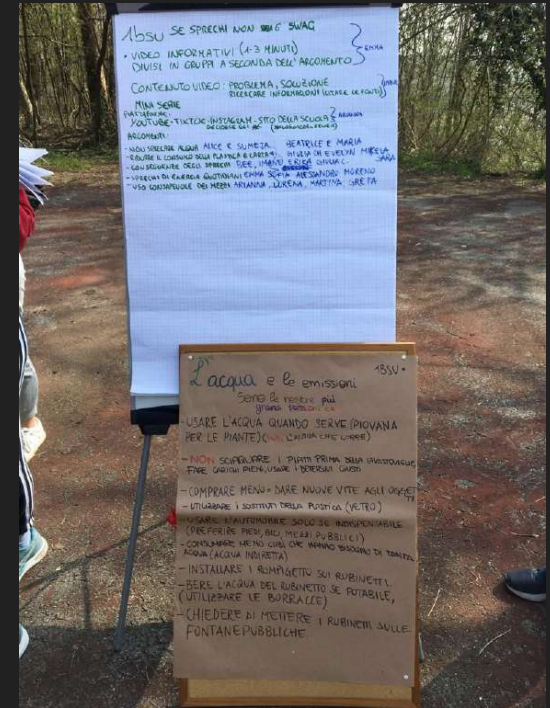 1BSU SE SPRECHI NON 6 SWAG
• VIDEO INFORMATIVI (1-3 MINUTI)
DIVISI IN GRUPPI A SECONDA DELL'ARGOMENTO
EMMA
CONTENUTO VIDEO: PROBLEMA, SOLUZIONE
RICERCARE INFORMAZIONI (CITARE LE FONTI)
MINI SERIE
PIATTAFORME:
YOUTUBE-TIKTOK-INSTAGRAM-SITO DELLA SCUOLA
ARIANNA
ARGOMENTI:
-NON SPRECARE ACQUA ALICE E SUMEJA, BEATRICE E MARIA
-RIDURRE IL CONSUMO DELLA PLASTICA E CARTA GIULIA CH EVELYN MIRELA
SARA
-CONSEGUENZE DEGLI SPRECHI BEE, IMANE ERIKA GIULIA C.
-SPRECHI DI ENERGIA QUOTIDIANI EMMA SOFIA ALESSANDRO MORENO
-USO CONSAPEVOLE DEI MEZZI ARIANNA, LORENA, MARTINA GRETA
L'acqua e le emissioni
1BSU
Sono le nostre più
grandi
-USARE L'ACQUA QUANDO SERVE (PIOVANA
PER LE PIANTE) (L'ACQUA CHE CORRE)
-NON SCIACQUARE I PIATTI PRIMA DELLA LAVASTOVIGLIE,
FARE CARICHI PIENI, USARE I DETERSIVI GIUSTI
-COMPRARE MENO=DARE NUOVE VITE AGLI OGGETTI
-UTILIZZARE I SOSTITUTI DELLA PLASTICA (VETRO)
-USARE L'AUTOMOBILE SOLO SE INDISPENSABILE
(PREFERIRE PIEDI, BICI, MEZZI PUBBLICI)
-CONSUMARE MENO CIBI CHE HANNO BISOGNO DI TANTA
ACQUA (ACQUA INDIRETTA)
-INSTALLARE I ROMPIGETTO SUI RUBINETTI
-BERE L'ACQUA DEL RUBINETTO SE POTABILE,
(UTILIZZARE LE BORRACCE)
-CHIEDERE DI METTERE I RUBINETTI SULLE
FONTANE PUBBLICHE